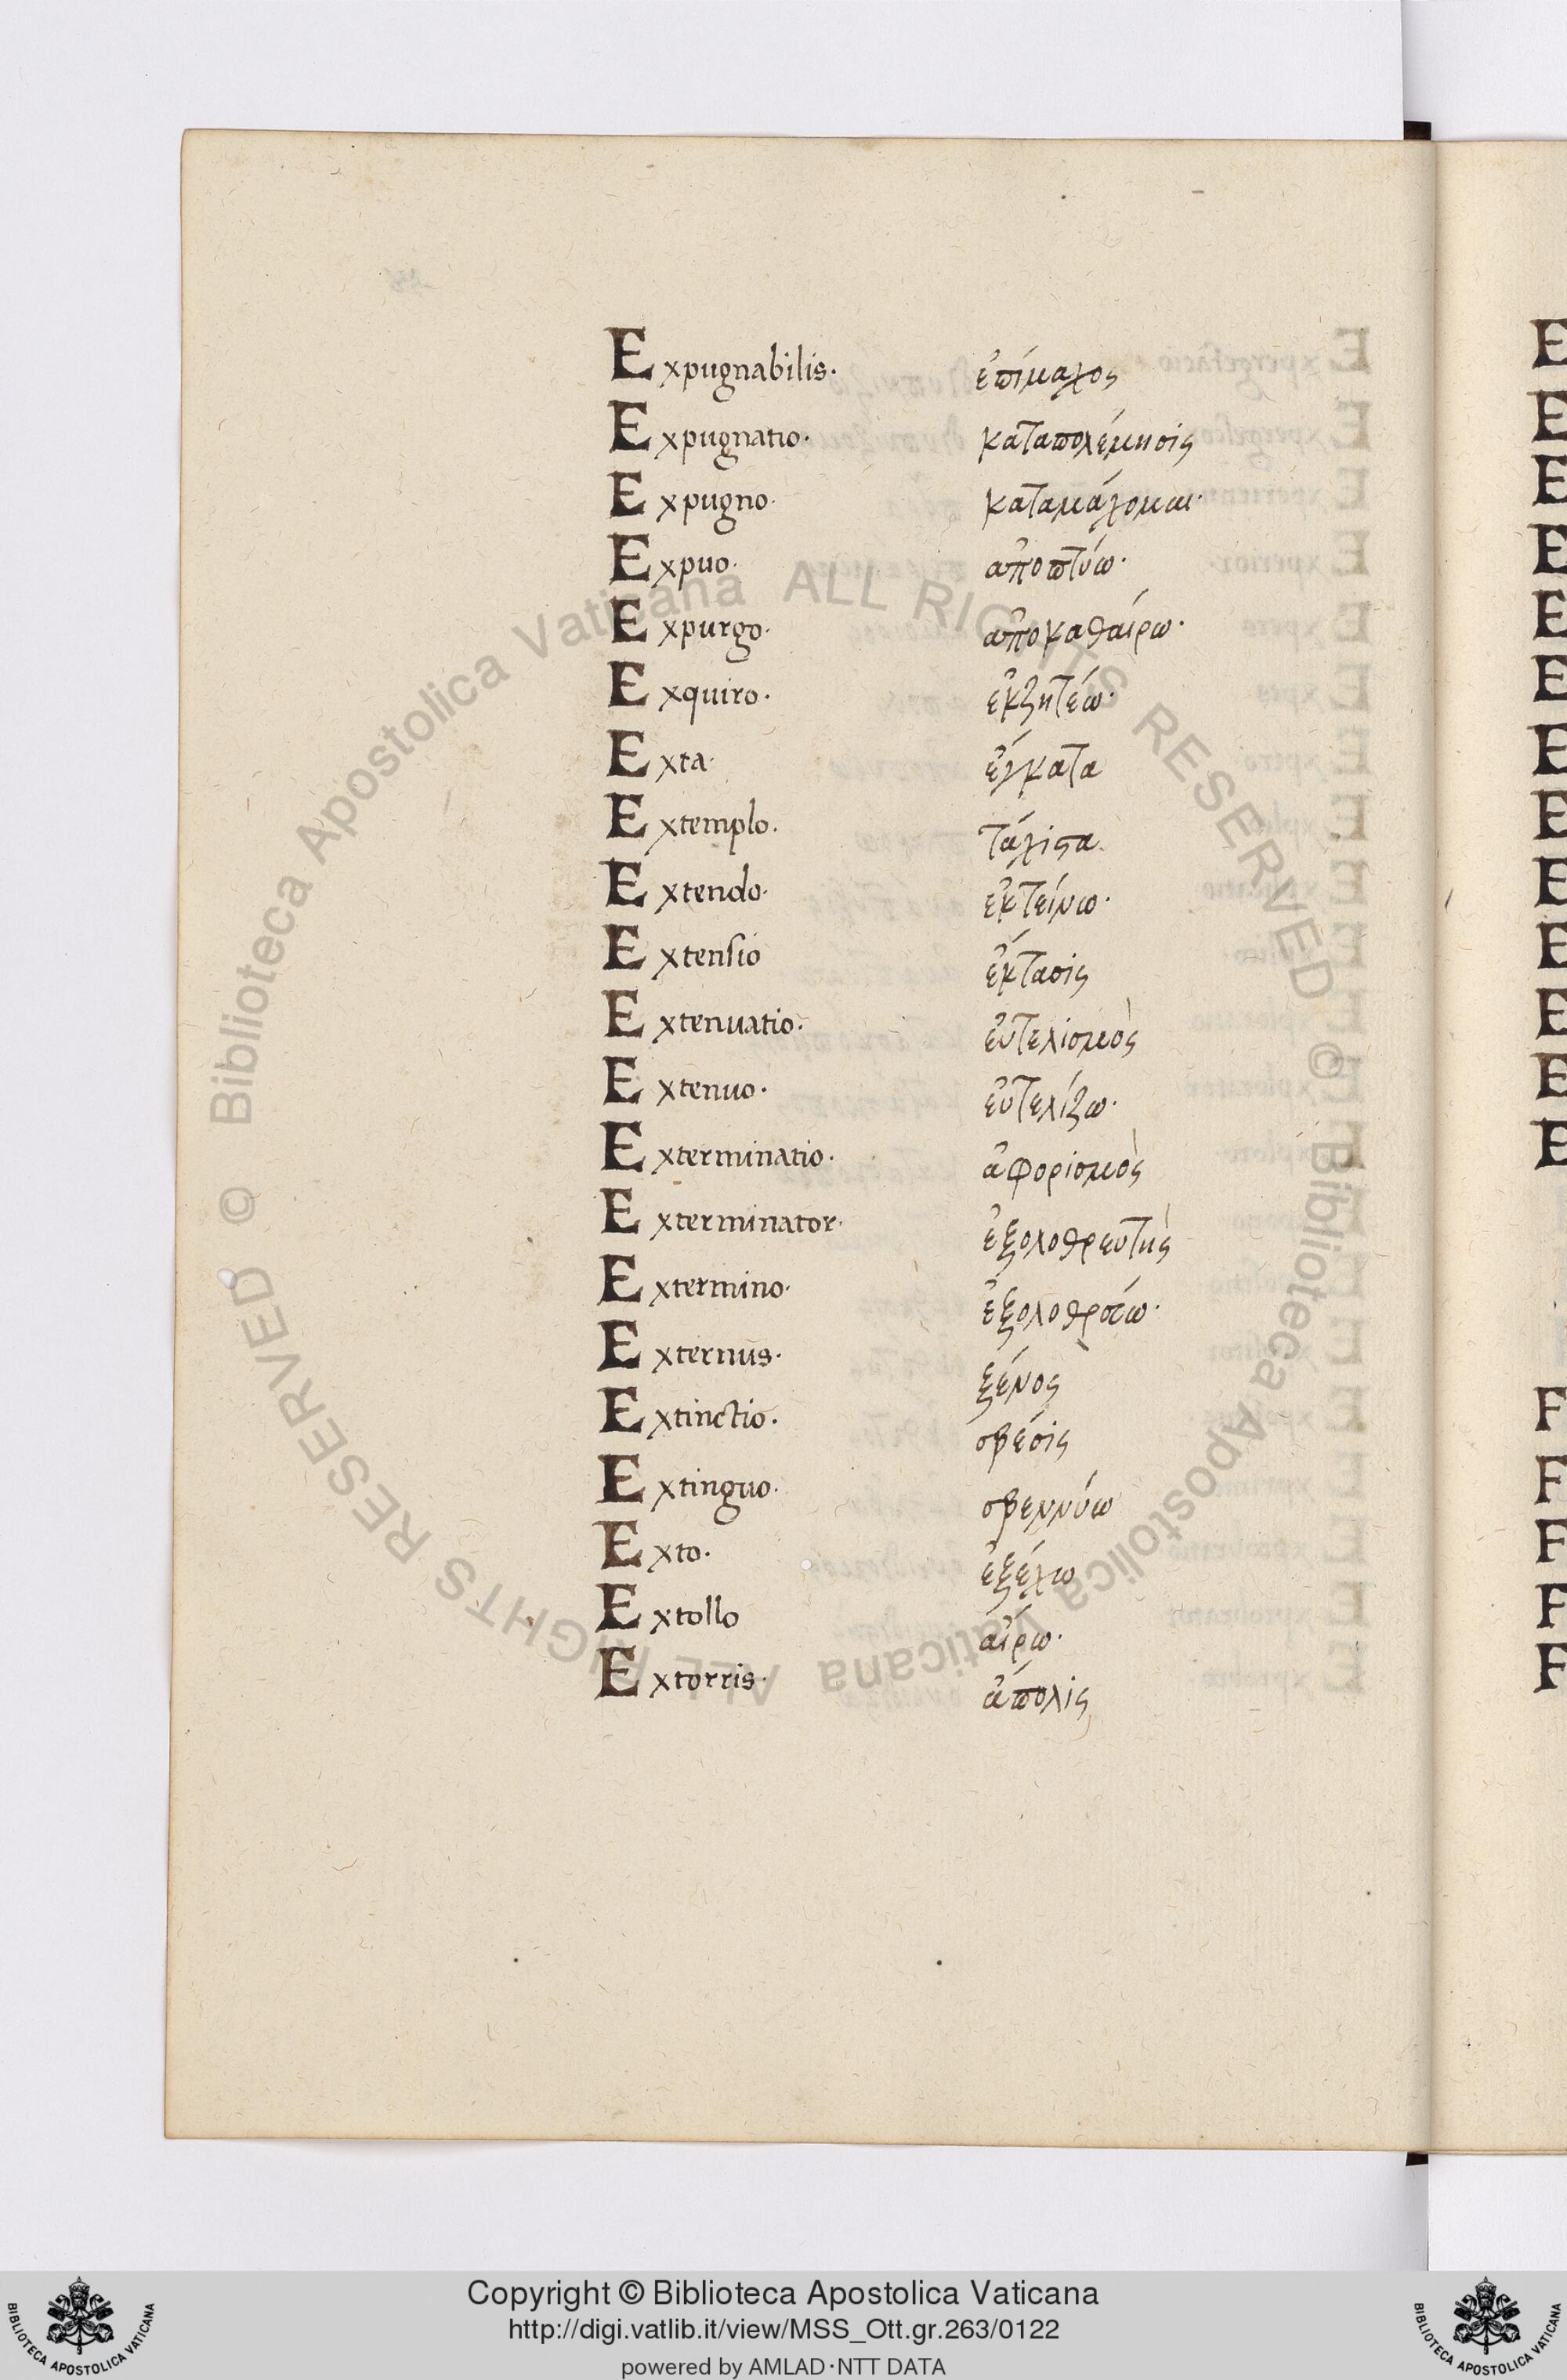 Expugnabilis· ἐπίμαχος
Expugnatio· καταπολέμησις
Expugno· καταμάχομαι·
Expuo· ἀποπτύω·
Expurgo· ἀποκαθαίρω·
Exquiro· ἐκζητέω·
Exta· ἔγκατα
Extemplo· τάχιστα
Extendo· ἐκτείνω·
Extensio ἔκτασις
Extenuatio· εὐτελισμὸς
Extenuo· εὐτελίζω·
Exterminatio· ἀφορισμὸς
Exterminator· ἐξολοθρευτὴς
Extermino·
Externus· ξένος
Extinctio· σβέσις
Extinguo· σβεννύω
Exto· ἐξέχω
Extollo αἴρω·
Extorris· ἄπολις
Biblioteca Apostolica Vaticana ALL RIGHTS RESERVED ©
Biblioteca Apostolica Vaticana ALL RIGHTS RESERVED ©
Copyright © Biblioteca Apostolica Vaticana
http://digi.vatlib.it/view/MSS_Ott.gr.263/0122
powered by AMLAD·NTT DATA
BIBLIOTECA APOSTOLICA VATICANA
BIBLIOTECA APOSTOLICA VATICANA